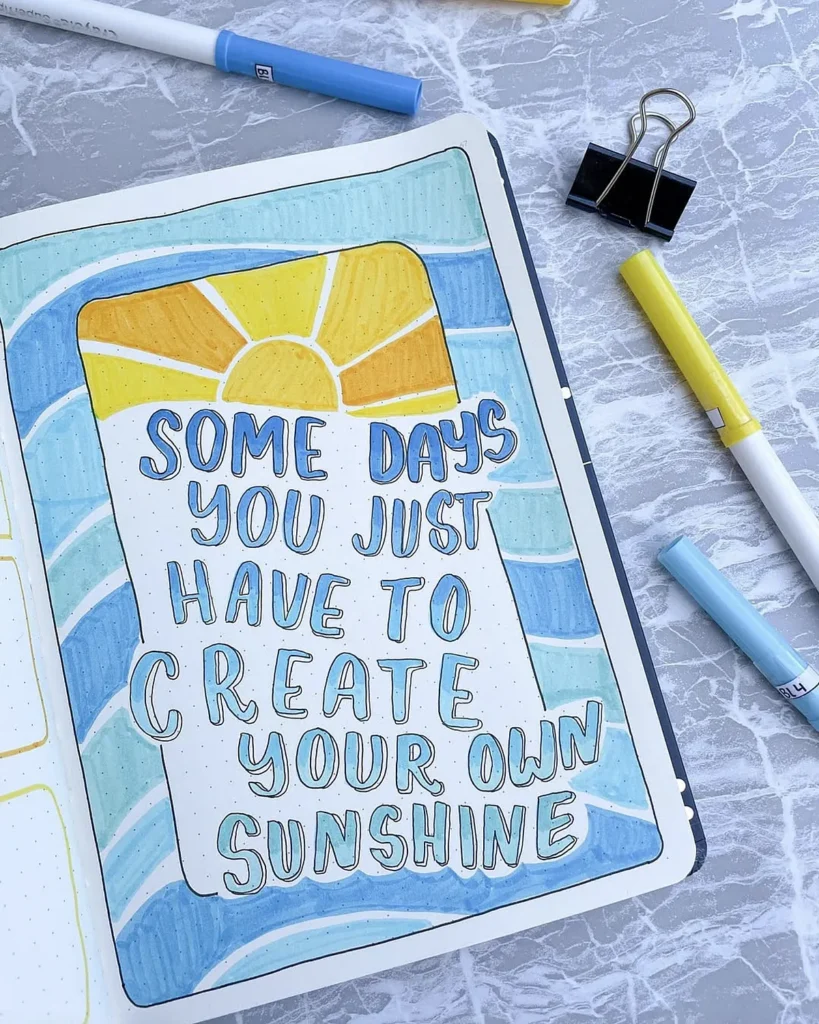 Crayola SuperTips
SOME DAYS
YOU JUST
HAVE TO
CREATE
YOUR OWN
SUNSHINE
BL4